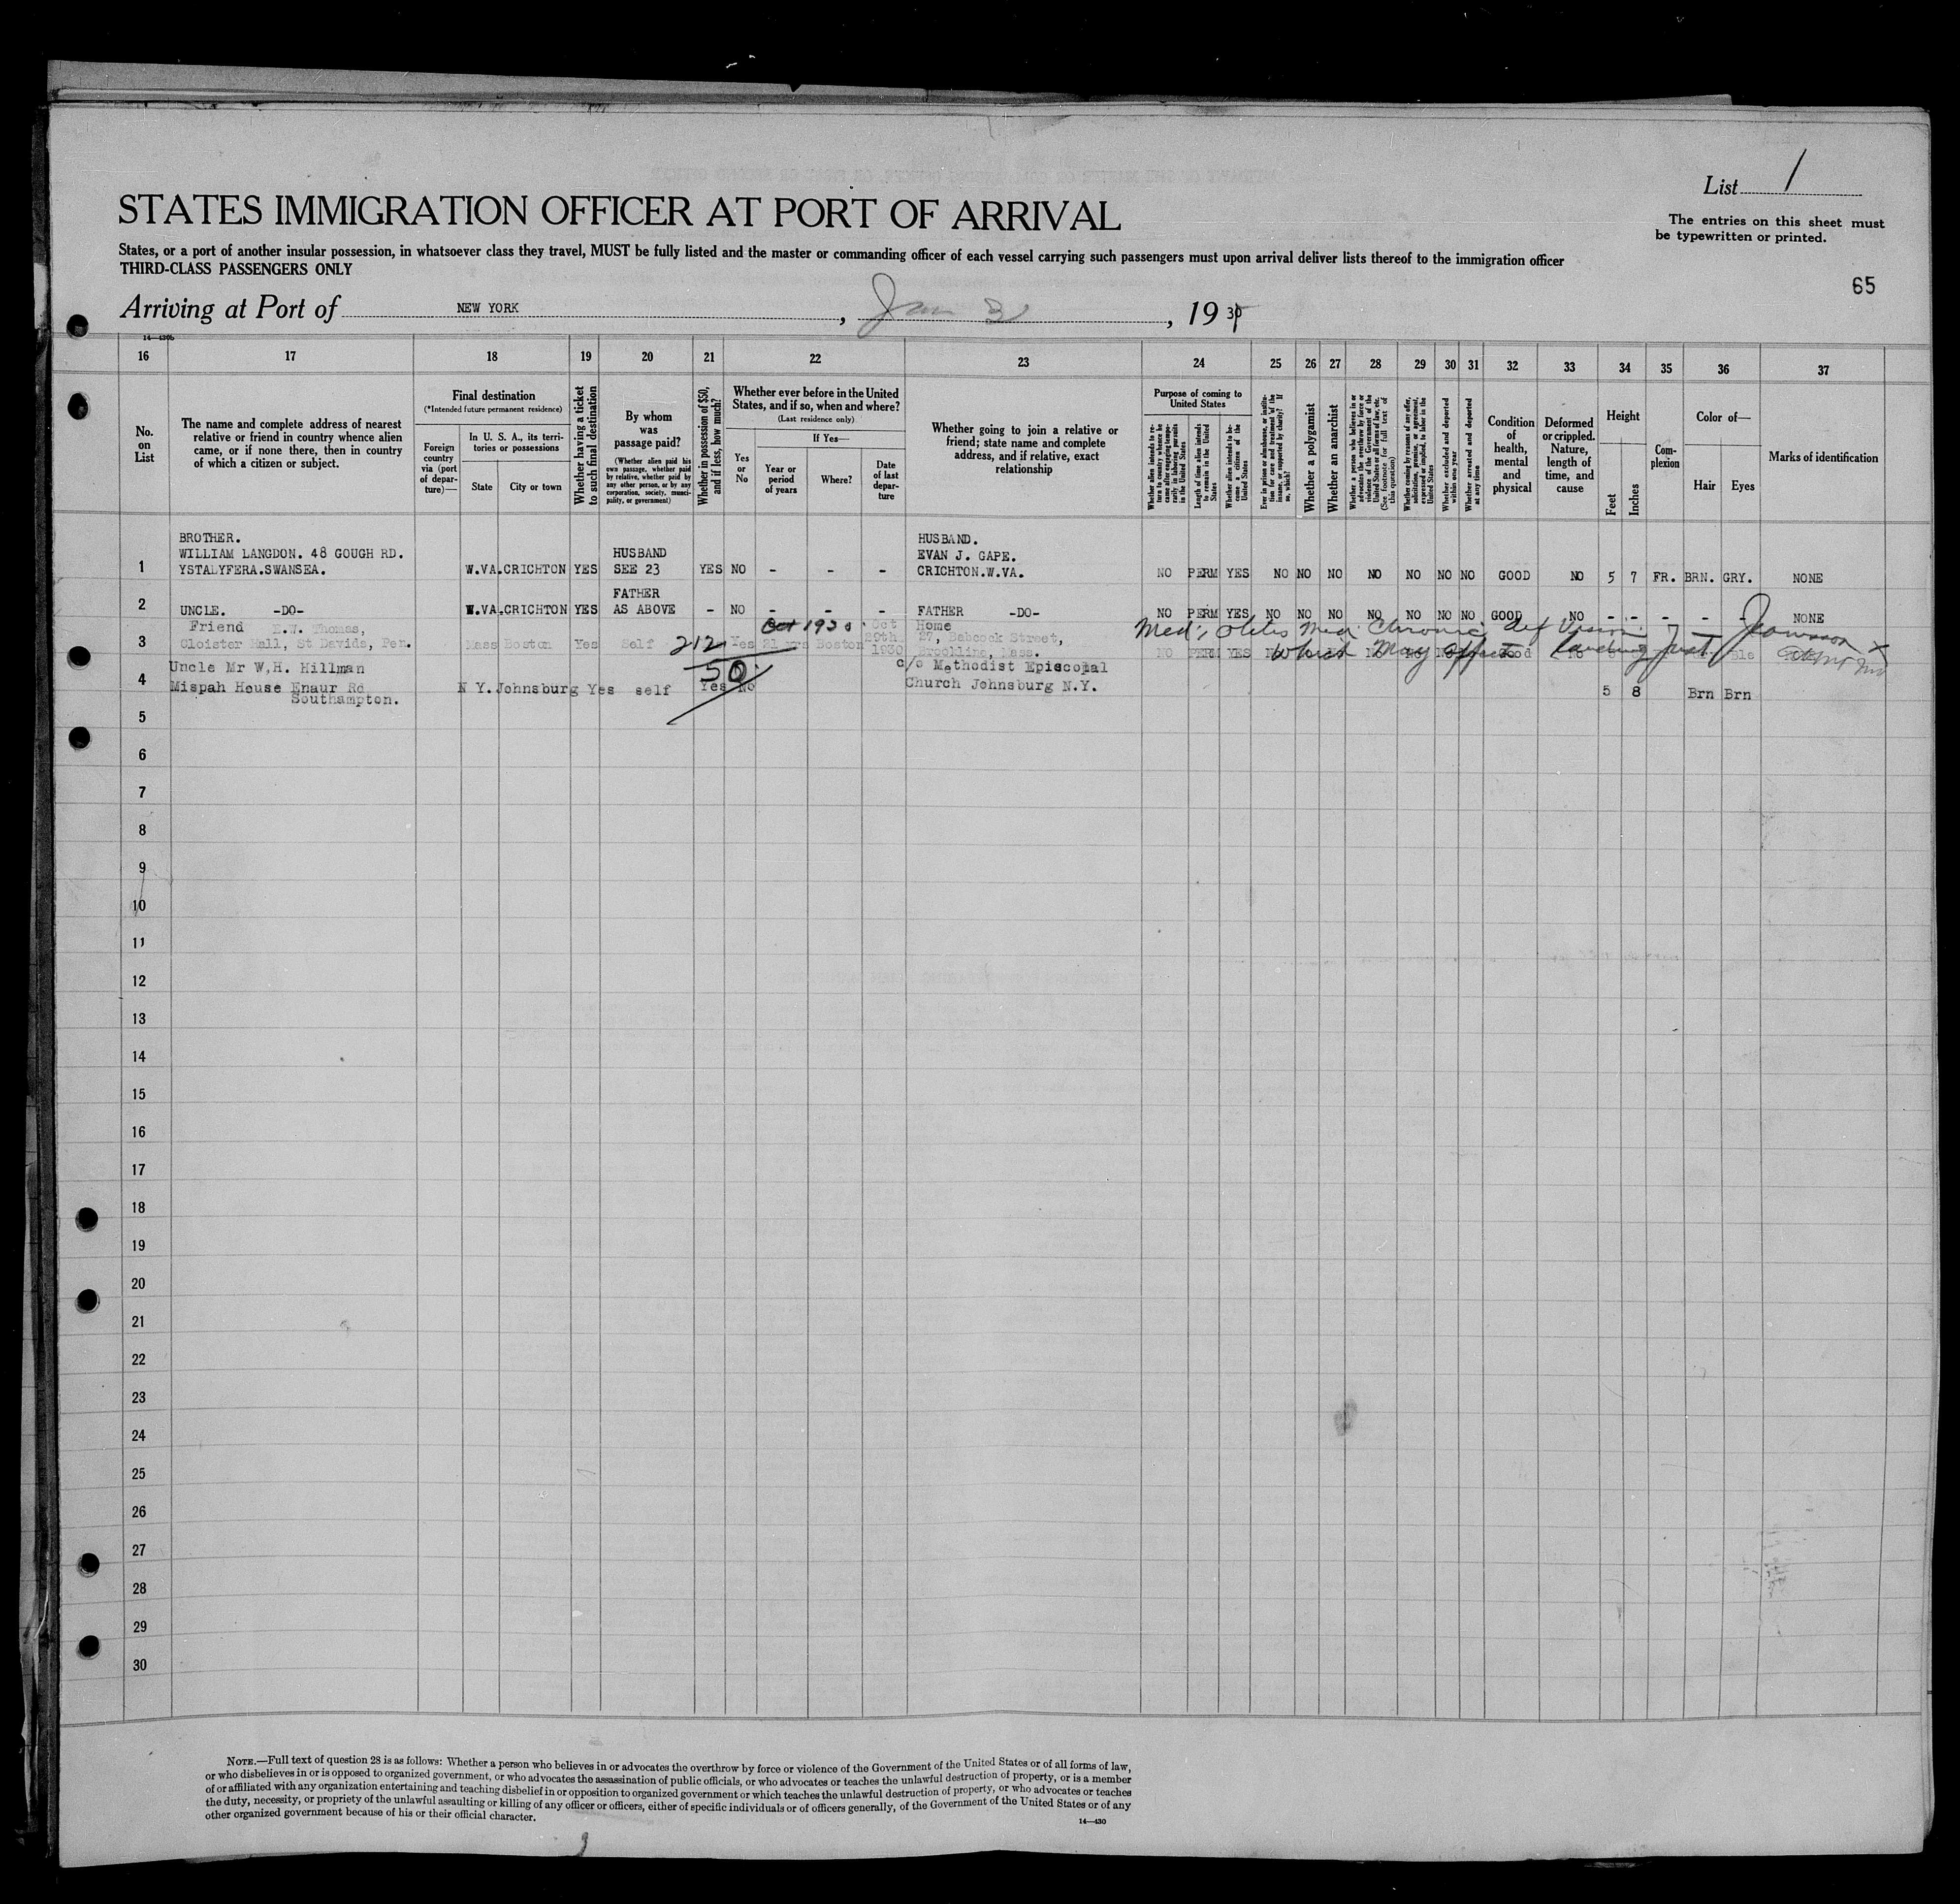 List 1
STATES IMMIGRATION OFFICER AT PORT OF ARRIVAL
The entries on this sheet must
be typewritten or printed.
States, or a port of another insular possession, in whatsoever class they travel, MUST be fully listed and the master or commanding officer of each vessel carrying such passengers must upon arrival deliver lists thereof to the immigration officer
THIRD-CLASS PASSENGERS ONLY
65
Arriving at Port of NEW YORK, Jan 2, 19
14—430b
16 17 18 19 20 21 22 23 24 25 26 27 28 29 30 31 32 33 34 35 36 37
No.
on
List
The name and complete address of nearest
relative or friend in country whence alien
came, or if none there, then in country
of which a citizen or subject.
Final destination
(*Intended future permanent residence)
Foreign
country
via (port
of depar-
ture)—
In U. S. A., its terri-
tories or possessions
State
City or town
Whether having a ticket
to such final destination
By whom
was
passage paid?
(Whether alien paid his
own passage, whether paid
by relative, whether paid by
any other person, or by any
corporation, society, munici-
pality, or government)
Whether in possession of $50,
and if less, how much?
Whether ever before in the United
States, and if so, when and where?
(Last residence only)
Yes
or
No
If Yes—
Year or
period
of years
Where?
Date
of last
depar-
ture
Whether going to join a relative or
friend; state name and complete
address, and if relative, exact
relationship
Purpose of coming to
United States
Whether alien intends to re-
turn to country whence he
came after engaging tempo-
rarily in laboring pursuits
in the United States
Length of time alien intends
to remain in the United
States
Whether alien intends to be-
come a citizen of the
United States
Ever in prison or almshouse, or institu-
tion for care and treatment of the
insane, or supported by charity? If
so, which?
Whether a polygamist
Whether an anarchist
Whether a person who believes in or
advocates the overthrow by force or
violence of the Government of the
United States or all forms of law, etc.
(See footnote for full text of
this question)
Whether coming by reasons of any offer,
solicitation, promise, or agreement,
expressed or implied, to labor in the
United States
Whether excluded and deported
within one year
Whether arrested and deported
at any time
Condition
of
health,
mental
and
physical
Deformed
or crippled.
Nature,
length of
time, and
cause
Height
Feet
Inches
Com-
plexion
Color of—
Hair
Eyes
Marks of identification
BROTHER. HUSBAND.
WILLIAM LANGDON. 48 GOUGH RD. HUSBAND EVAN J. GAPE.
1 YSTALYFERA.SWANSEA. W.VA.CRICHTON YES SEE 23 YES NO - - - CRICHTON.W.VA. NO PERM YES NO NO NO NO NO NO NO GOOD NO 5 7 FR. BRN. GRY. NONE
FATHER
2 UNCLE. -DO- W.VA.CRICHTON YES AS ABOVE - NO - - - FATHER -DO- NO PERM YES NO NO NO NO NO NO NO GOOD NO - - - - - NONE
Friend E.W. Thomas, Oct 1930 Oct Home Med: Otitis Med. Chronic; def Vision
3 Cloister Hall, St Davids, Pen. Mass Boston Yes Self 212 Yes Boston 29th 1930 27, Babcock Street,
Brookline, Mass. NO PERM YES which May affect Good No Ble
Uncle Mr W,H. Hillman 50 c/o Methodist Episcopal
4 Mispah House Enaur Rd N Y.Johnsburg Yes self Yes No Church Johnsburg N.Y. 5 8 Brn Brn
Southampton.
5
6
7
8
9
10
11
12
13
14
15
16
17
18
19
20
21
22
23
24
25
26
27
28
29
30
NOTE.—Full text of question 28 is as follows: Whether a person who believes in or advocates the overthrow by force or violence of the Government of the United States or of all forms of law,
or who disbelieves in or is opposed to organized government, or who advocates the assassination of public officials, or who advocates or teaches the unlawful destruction of property, or is a member
of or affiliated with any organization entertaining and teaching disbelief in or opposition to organized government or which teaches the unlawful destruction of property, or who advocates or teaches
the duty, necessity, or propriety of the unlawful assaulting or killing of any officer or officers, either of specific individuals or of officers generally, of the Government of the United States or of any
other organized government because of his or their official character.
14—430